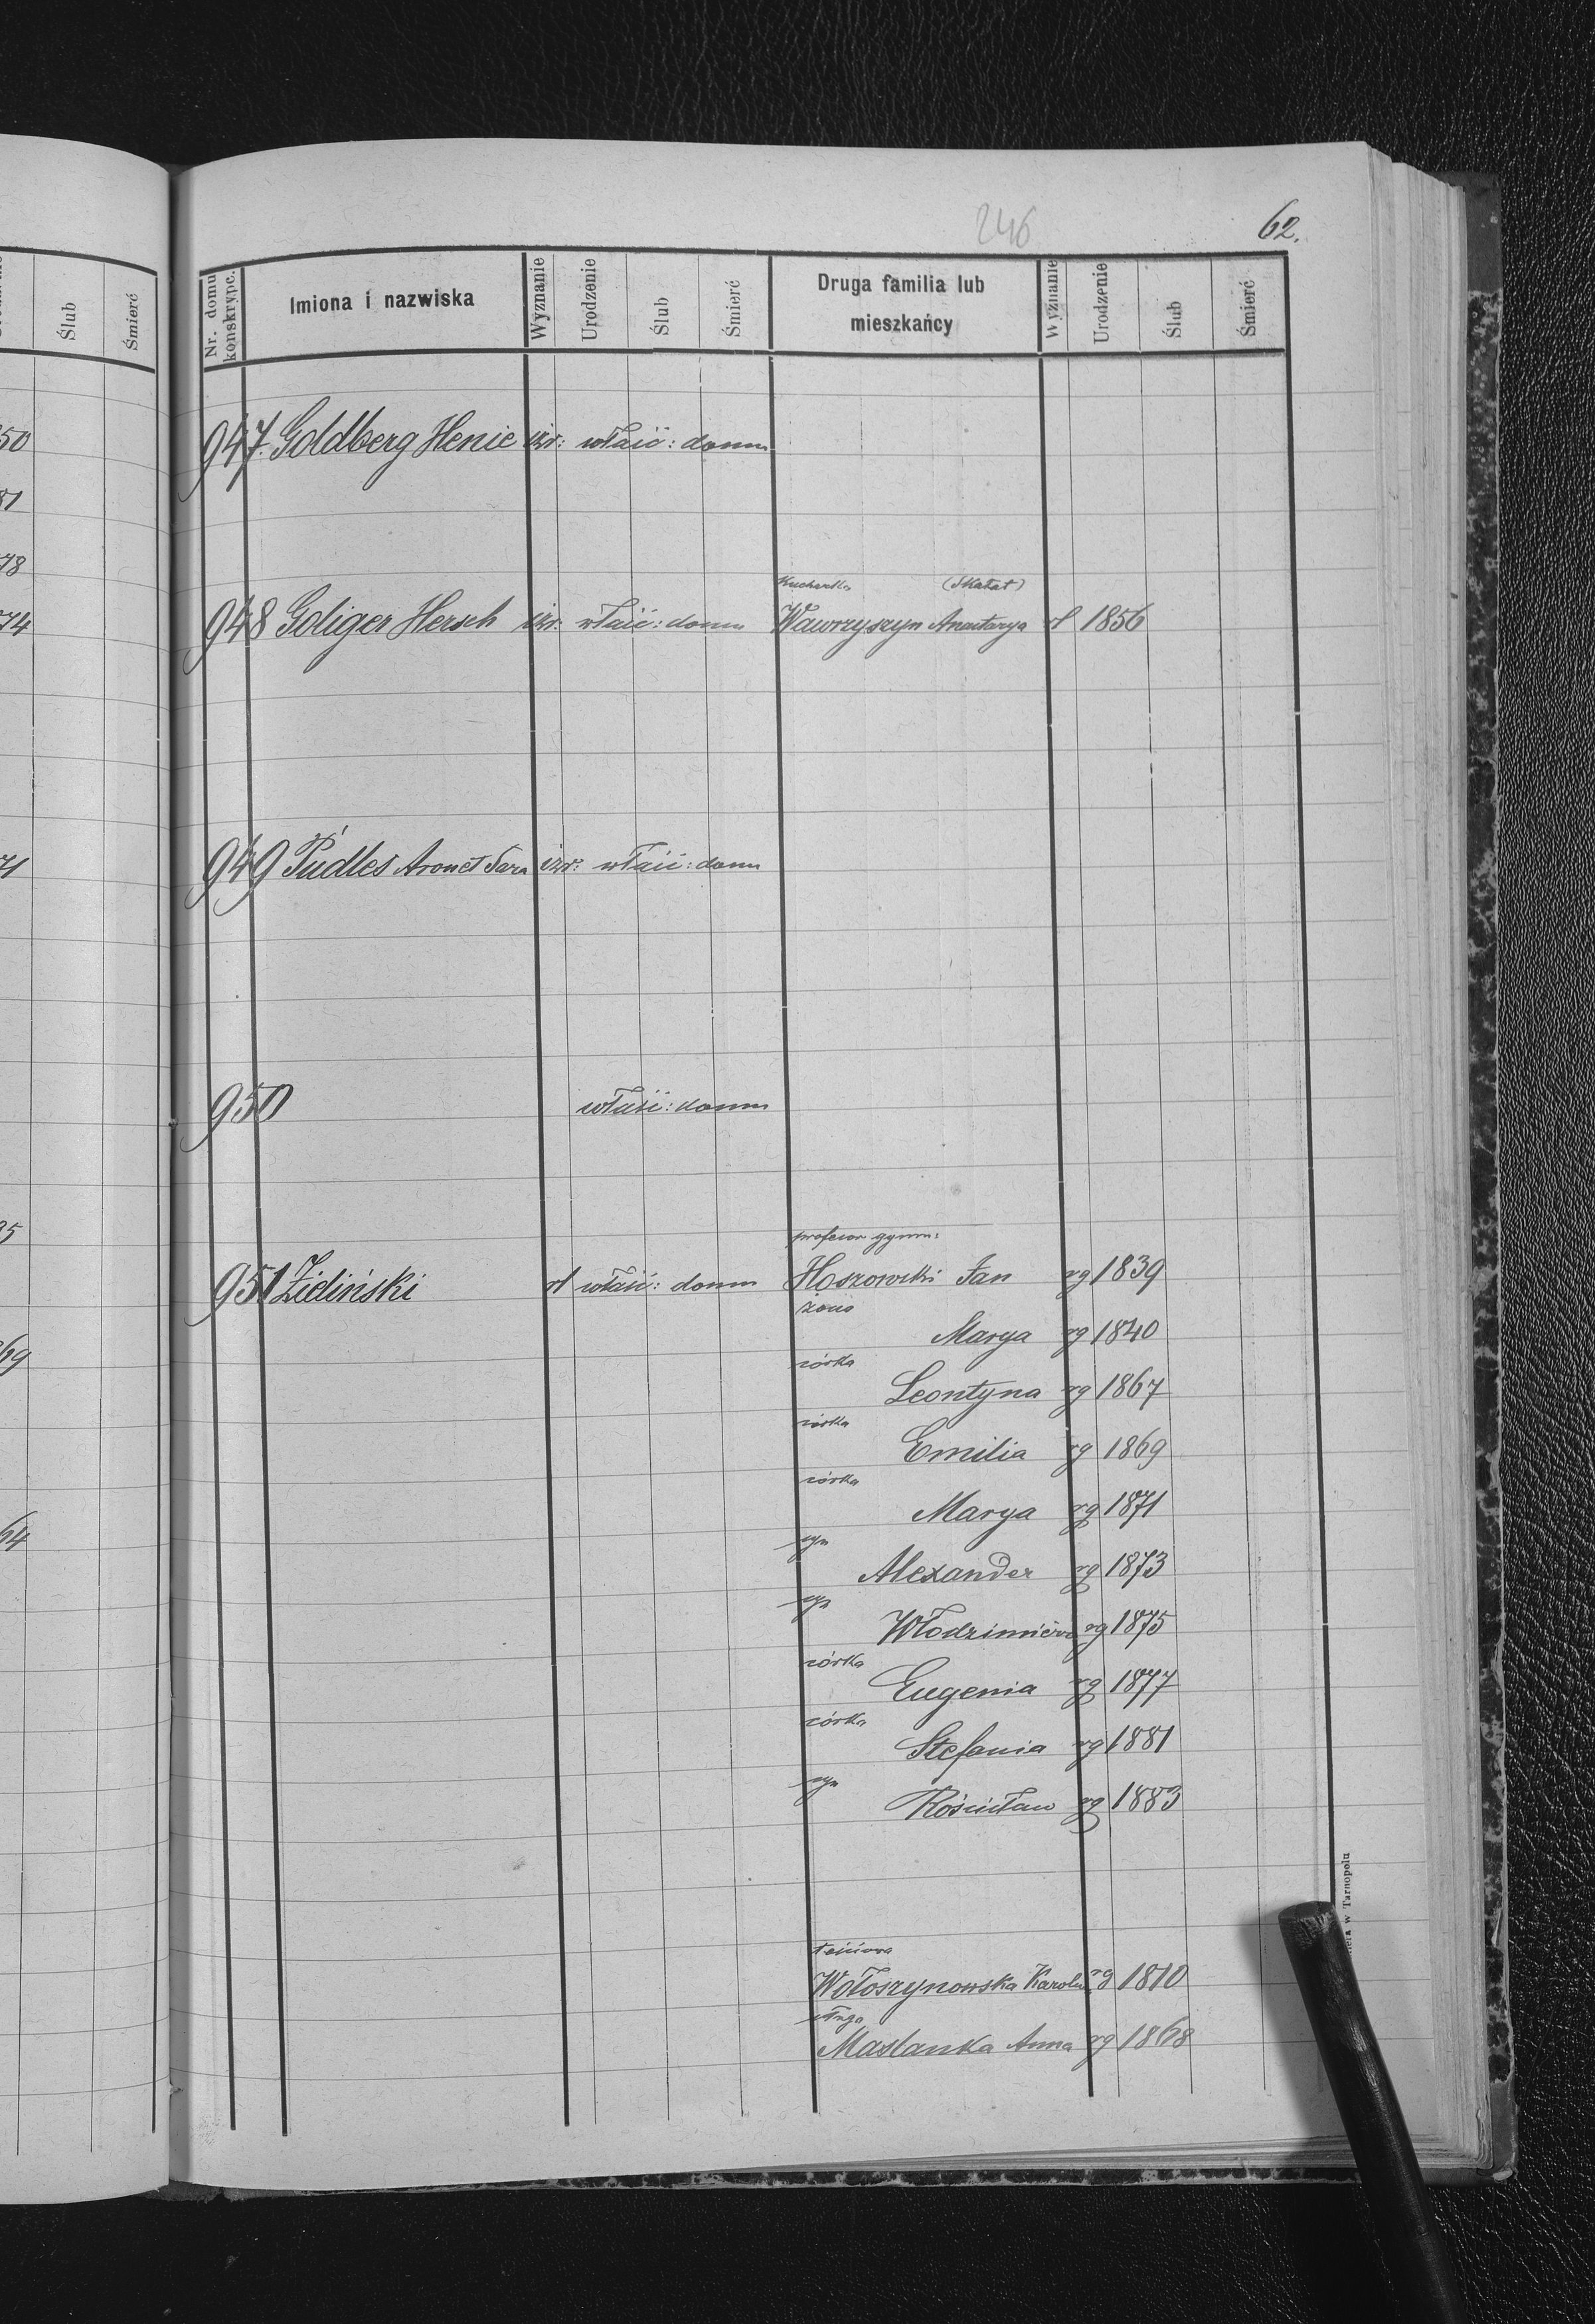 246
62.
Nr. domu konskrypc. Imiona i nazwiska Wyznanie Urodzenie Ślub Śmierć Druga familia lub mieszkańcy Wyznanie Urodzenie Ślub Śmierć
Ślub Śmierć
50
81
78
74
71
69
64
947. Goldberg Henie izr: właść: domu
Kucharka (Skałat)
948 Goliger Hersch izr. właść: domu Wawrzyszyn Anastazya rł 1856
949 Pudles Aronet Sara izr: właść: domu
950 właść: domu
profesor gymn:
951 Zieliński rł właść: domu Hoszowski Jan rg 1839
żona
Marya rg 1840
córka
Leontyna rg 1867
córka
Emilia rg 1869
córka
Marya rg 1871
syn
Alexander rg 1873
syn
Włodzimierz rg 1875
córka
Eugenia rg 1877
córka
Stefania rg 1881
syn
Rościsław rg 1883
teściowa
Wołoszynowska Karolina rg 1810
sługa
Maslanka Anna rg 1868
w Tarnopolu